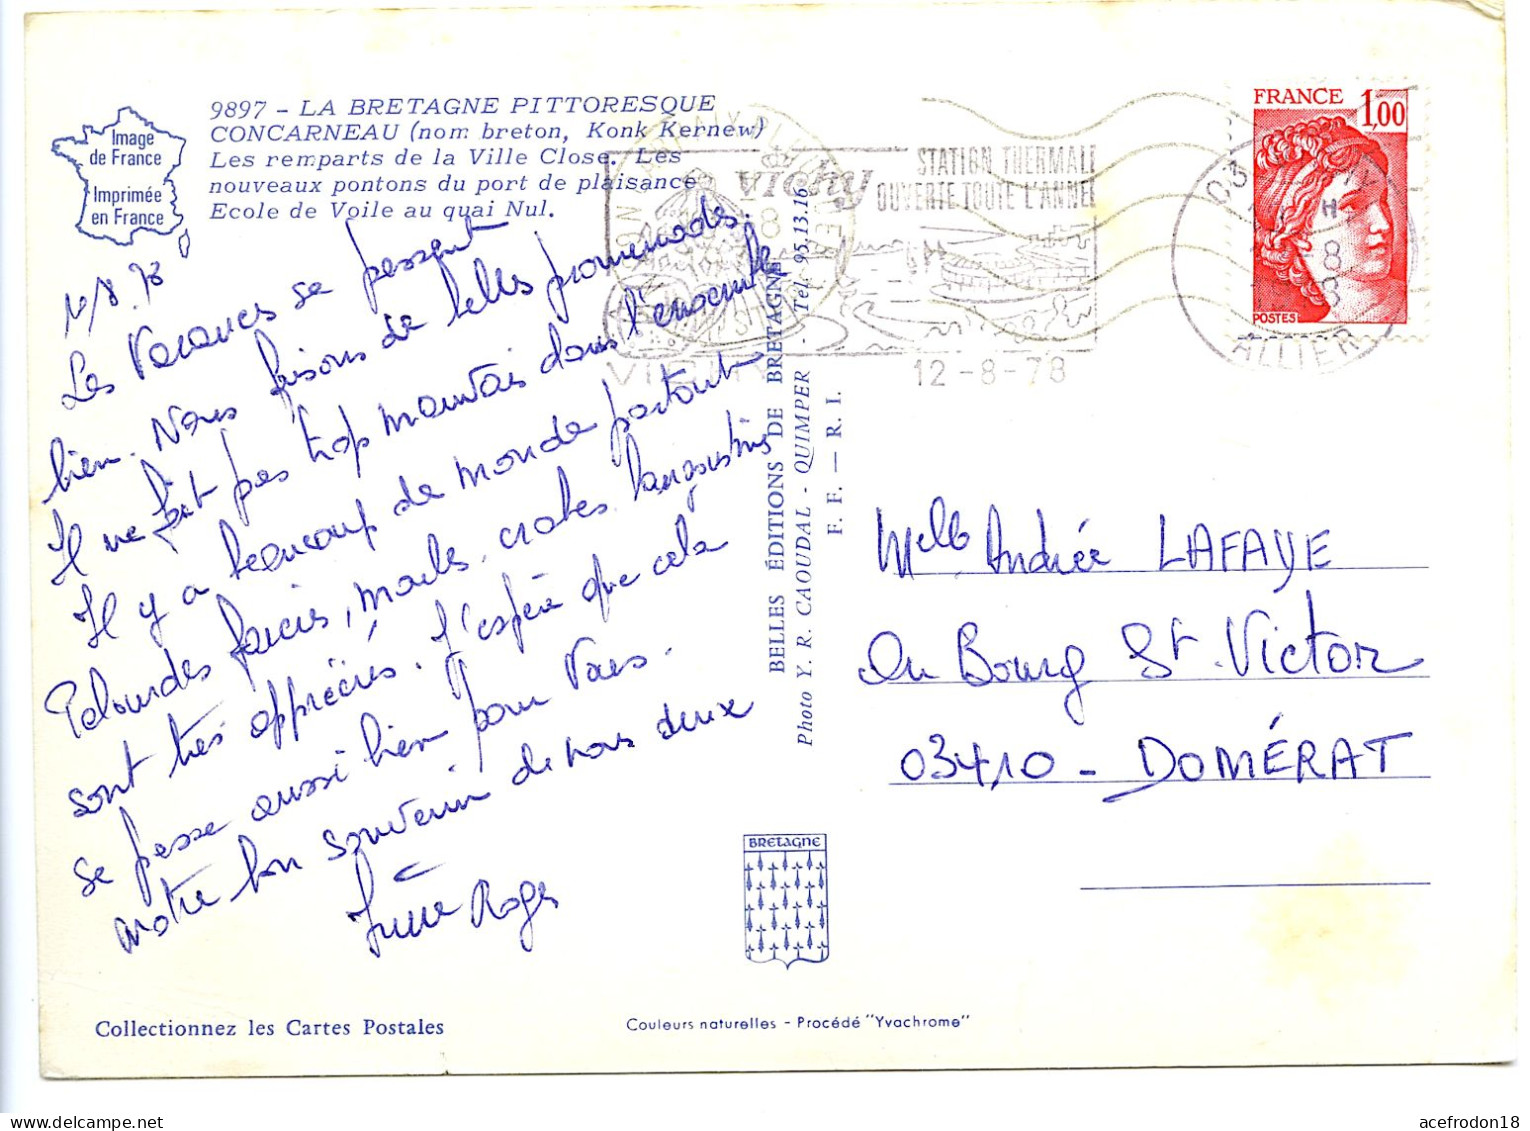 Image
de France
Imprimée
en France
9897 - LA BRETAGNE PITTORESQUE
CONCARNEAU (nom breton, Konk Kernew)
Les remparts de la Ville Close. Les
nouveaux pontons du port de plaisance
Ecole de Voile au quai Nul.
Les Vacances se passent
bien. Nous faisons de belles promenades.
Il ne fait pas trop mauvais dans l'ensemble
Il y a beaucoup de monde partout
Palourdes farcies, moules, crabes langoustines
sont très appréciés. J'espère que cela
se passe aussi bien pour Vous.
Notre bon souvenir de nous deux
Roger
BELLES ÉDITIONS DE BRETAGNE
Photo Y. R. CAOUDAL - QUIMPER - Tél. 95.13.16
F. F. — R. I.
BRETAGNE
vichy
STATION THERMALE
OUVERTE TOUTE L'ANNEE
VICHY
12-8-78
FRANCE 1,00
POSTES
03
ALLIER
Melle Andrée LAFAYE
Au Bourg St. Victor
03410 - DOMÉRAT
Collectionnez les Cartes Postales
Couleurs naturelles - Procédé "Yvachrome"
acefrodon18